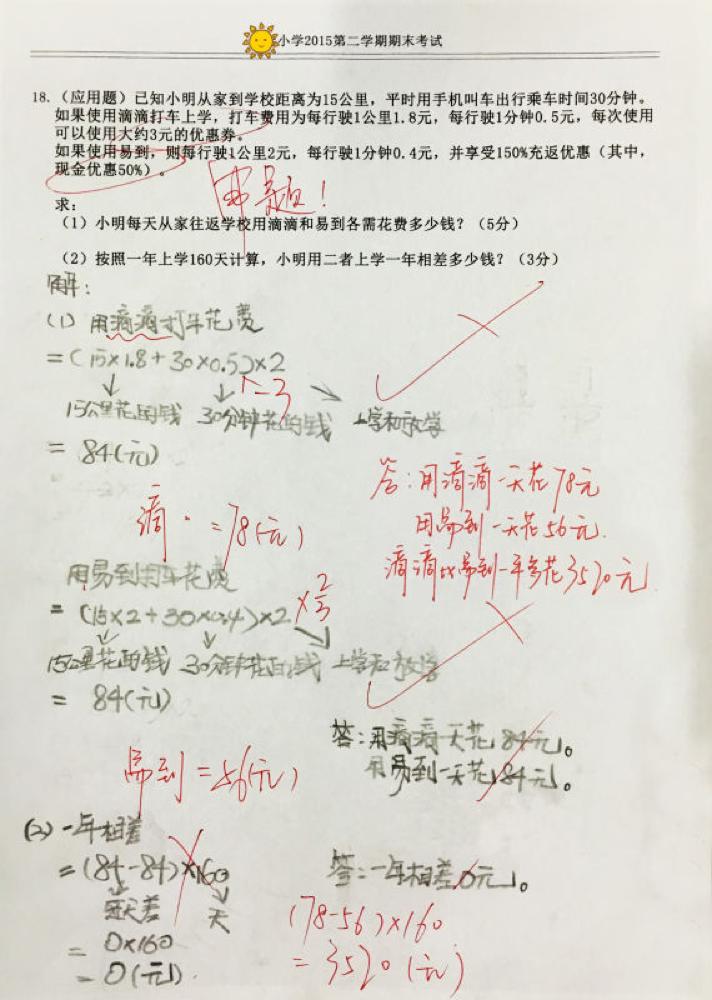 小学2015第二学期期末考试
18.（应用题）已知小明从家到学校距离为15公里，平时用手机叫车出行乘车时间30分钟。
如果使用滴滴打车上学，打车费用为每行驶1公里1.8元，每行驶1分钟0.5元，每次使用
可以使用大约3元的优惠券。
如果使用易到，则每行驶1公里2元，每行驶1分钟0.4元，并享受150%充返优惠（其中，
现金优惠50%）。
审题！
求：
（1）小明每天从家往返学校用滴滴和易到各需花费多少钱？（5分）
（2）按照一年上学160天计算，小明用二者上学一年相差多少钱？（3分）
解：
(1) 用滴滴打车花费
=(15×1.8+30×0.5)×2
-3
15公里花的钱 30分钟花的钱 上学和放学
= 84(元)
答：用滴滴一天花78元
用易到一天花56元.
滴滴比易到一年多花3520元
滴 = 78(元)
用易到打车花费
= (15×2+30×0.4)×2 ×2/3
15公里花的钱 30分钟花的钱 上学和放学
= 84(元)
答：用滴滴一天花84元。
用易到一天花84元。
易到=56(元)
(2) 一年相差
=(84-84)×160
每天差 天
答：一年相差0元。
= 0×160
= 0(元).
(78-56)×160
= 3520(元)